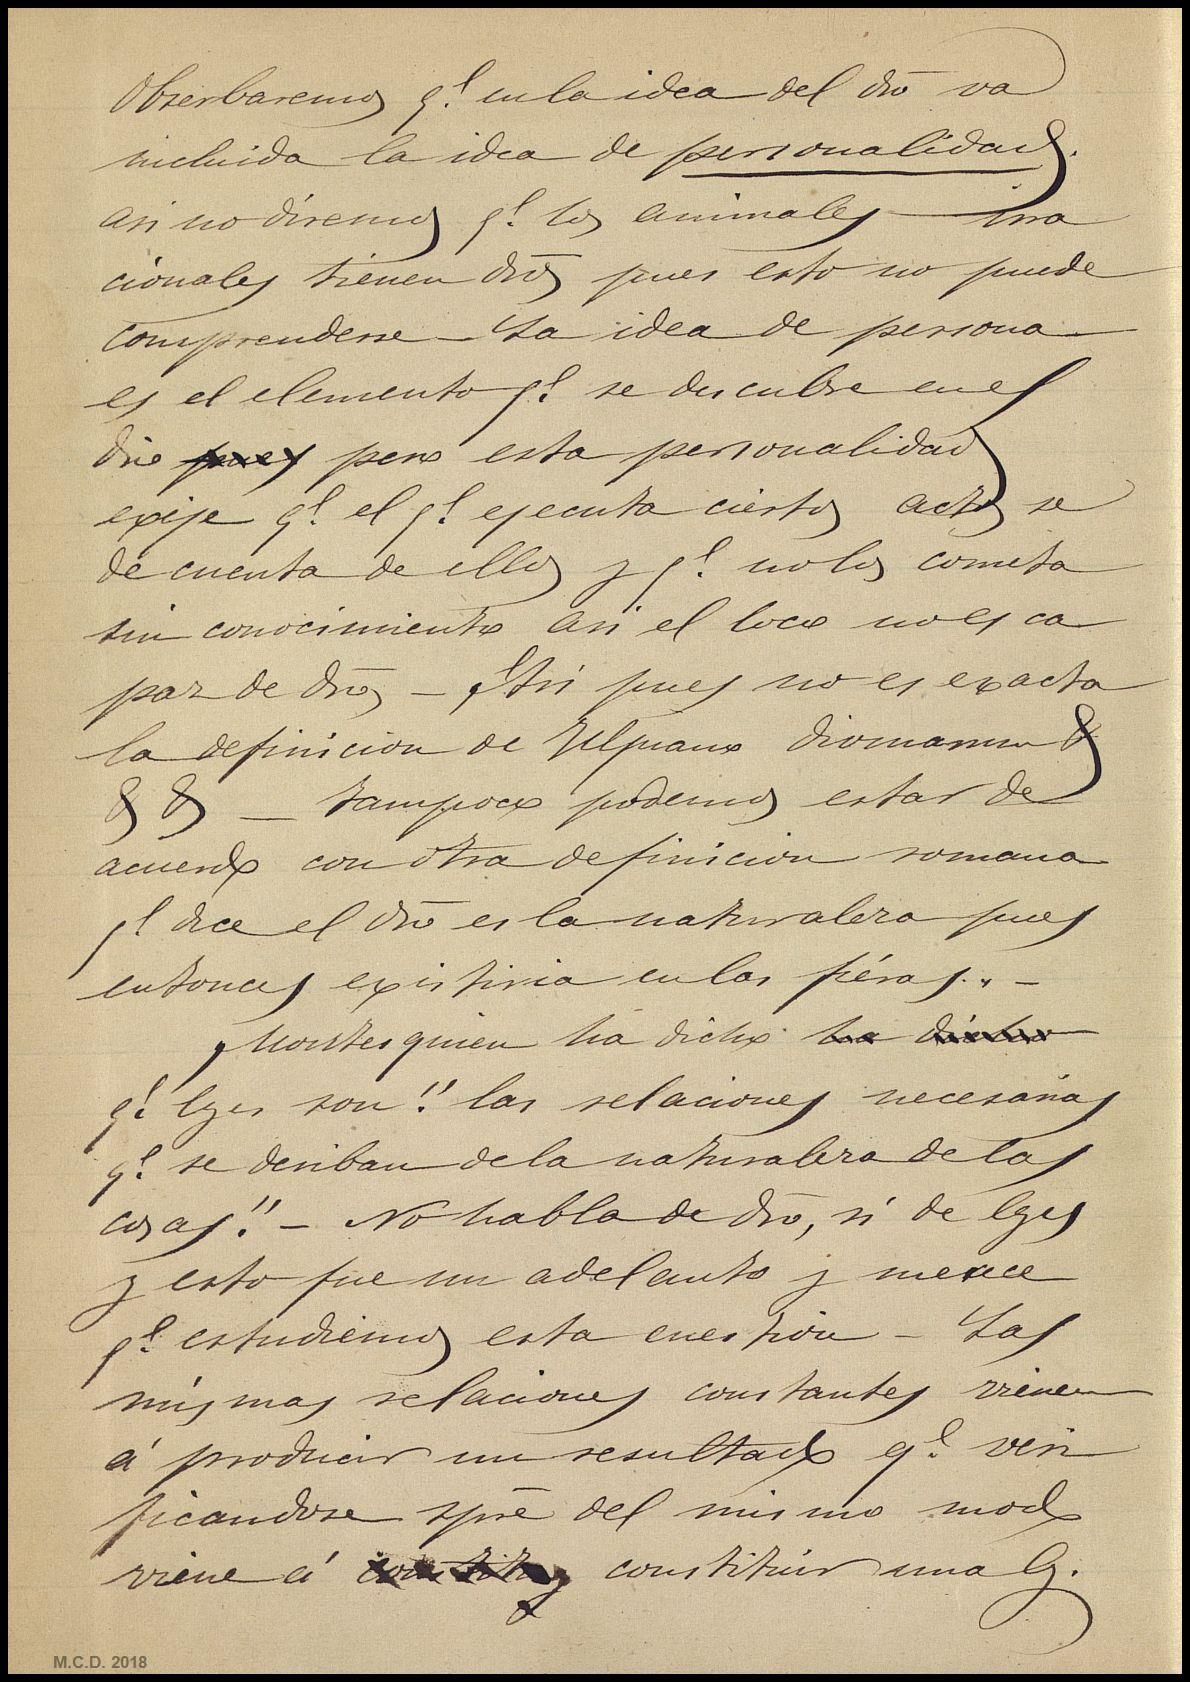 Obserbaremos q.e en la idea del dr̄o va
incluida la idea de personalidad.
asi no diremos q.e los animales irra
cionales tienen dr̄os pues esto no puede
comprenderse — La idea de persona
es el elemento q.e se descubre en el
dr̄o pues pero esta personalidad
exije q.e el q.e ejecuta ciertos actos se
dé cuenta de ellos y q.e no los cometa
sin conocimiento asi el loco no es ca
paz de dr̄os — Asi pues no es exacta
la definicion de Ulpiano &
& & — tampoco podemos estar de
acuerdo con otra definicion romana
q.e dice el dr̄o es la naturaleza pues
entonces existiria en las fiéras.. —
Montesquieu ha dicho ha dicho
q.e lyes son!! las relaciones necesarias
q.e se deriban de la naturaleza de las
cosas!! — No habla de dr̄o, si de lyes
y esto fue un adelanto y merece
q.e estudiemos esta cuestion — Las
mismas relaciones constantes vienen
á producir un resultado q.e veri
ficandose sprē del mismo modo
viene á constituir una ly.
M.C.D. 2018